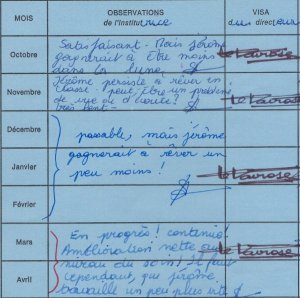 MOIS
OBSERVATIONS
de l'Institutrice
VISA
du directeur
Octobre
Satisfaisant - Mais Jérôme
gagnerait à être moins
dans la lune.
Novembre
Jérôme persiste à rêver en
classe. Peut être un problème
de vue ou d'ouïe?
très lent -
Décembre
passable, mais jérôme
gagnerait à rêver un
peu moins!
Janvier
Février
Mars
En progrès! continue!
Amélioration nette
niveau du soin, il faut
Avril
cependant, que jérôme
travaille un peu plus vite